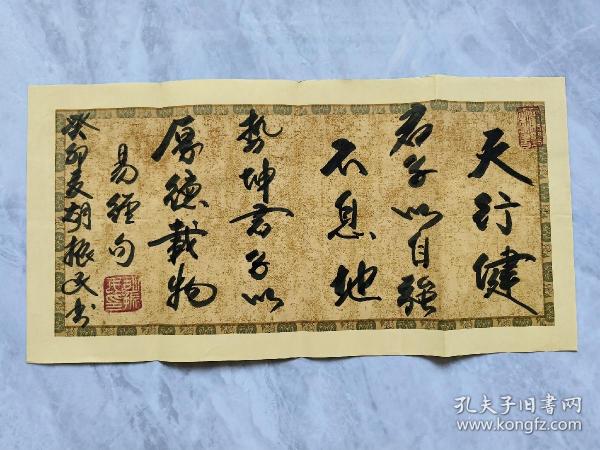 天行健
君子以自強
不息地
勢坤君子以
厚德載物
易經句
癸卯夏胡振文書
孔夫子旧书网
www.kongfz.com